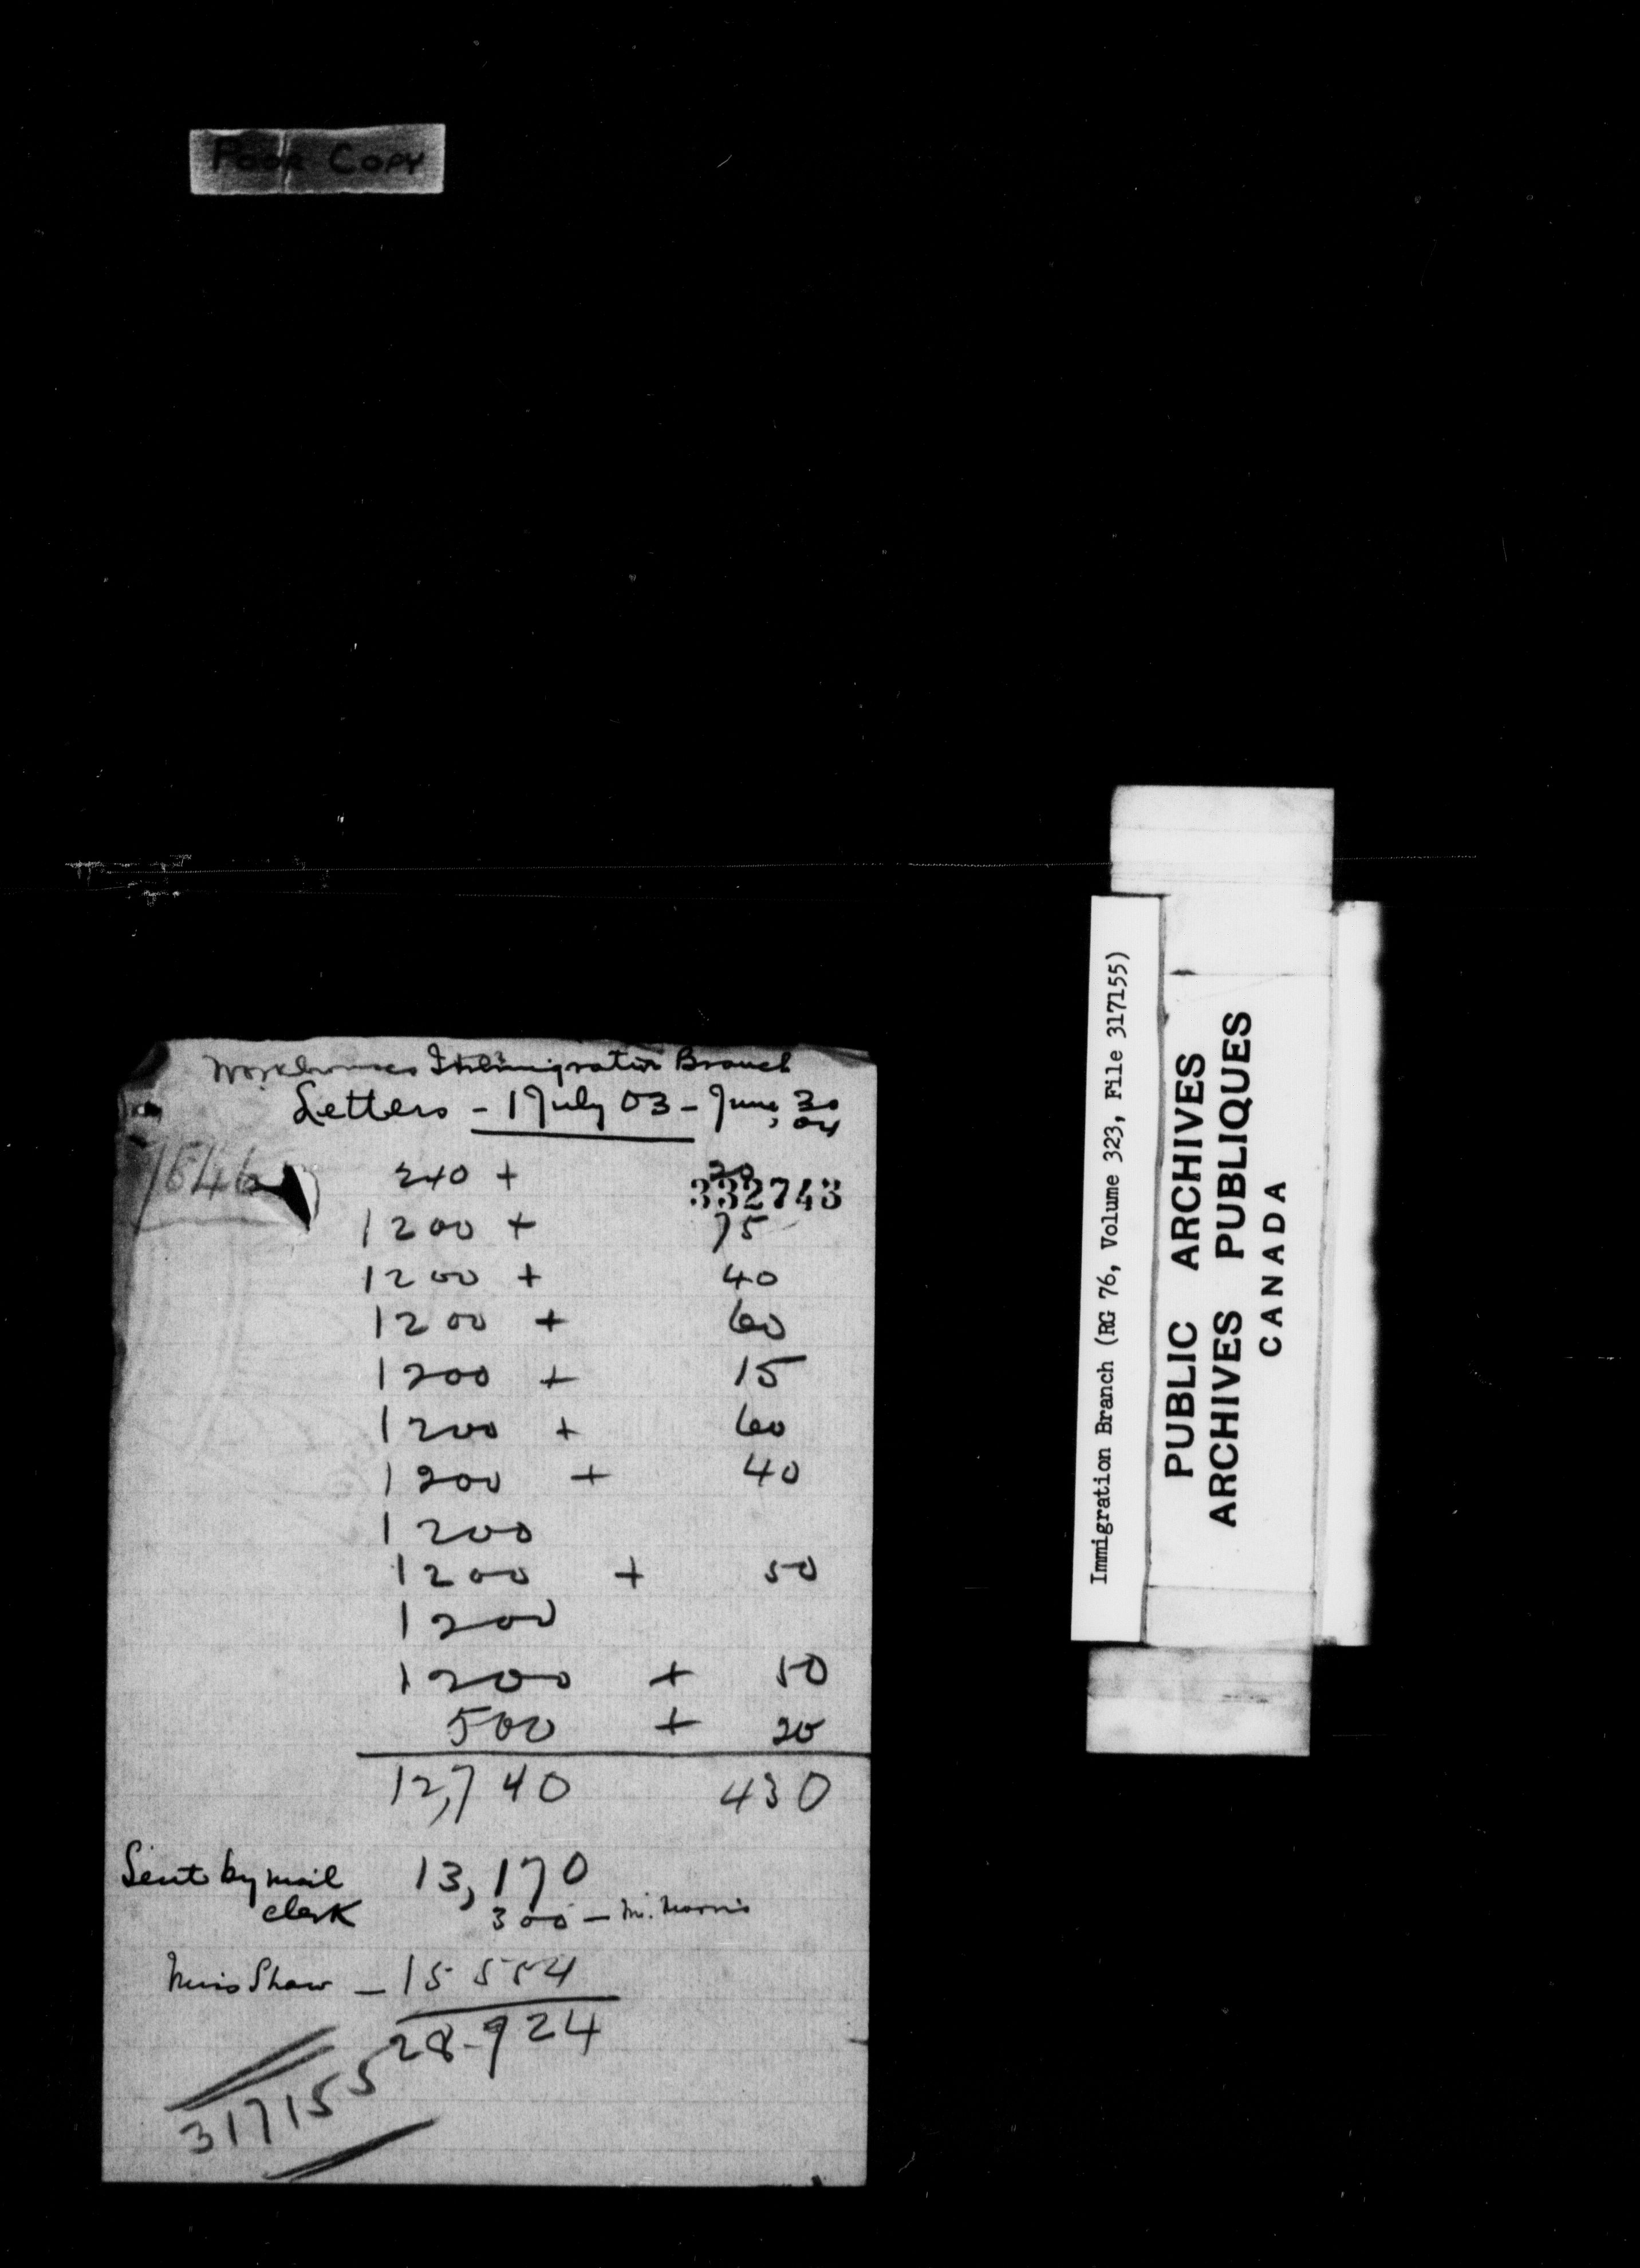 POOR COPY
Immigration Branch
Letters - 1 July 03 - June 30
04
7546
240 + 20
332743
1200 + 75
1200 + 40
1200 + 60
1200 + 15
1200 + 60
1200 + 40
1200
1200 + 50
1200
1200 + 50
500 + 20
12,740 430
Sent by mail 13,170
clerk 300 -
Miss Shaw - 15554
28-924
317155
Immigration Branch (RG 76, Volume 323, File 317155)
PUBLIC ARCHIVES
ARCHIVES PUBLIQUES
CANADA